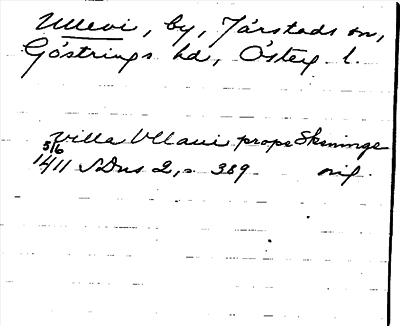 Ullevi, by, Járstads sn,
Göstrings hd, Österg. l.
villa Vllaui prope Skeninge
5/6
1411 SDns 2, s. 389. orig.